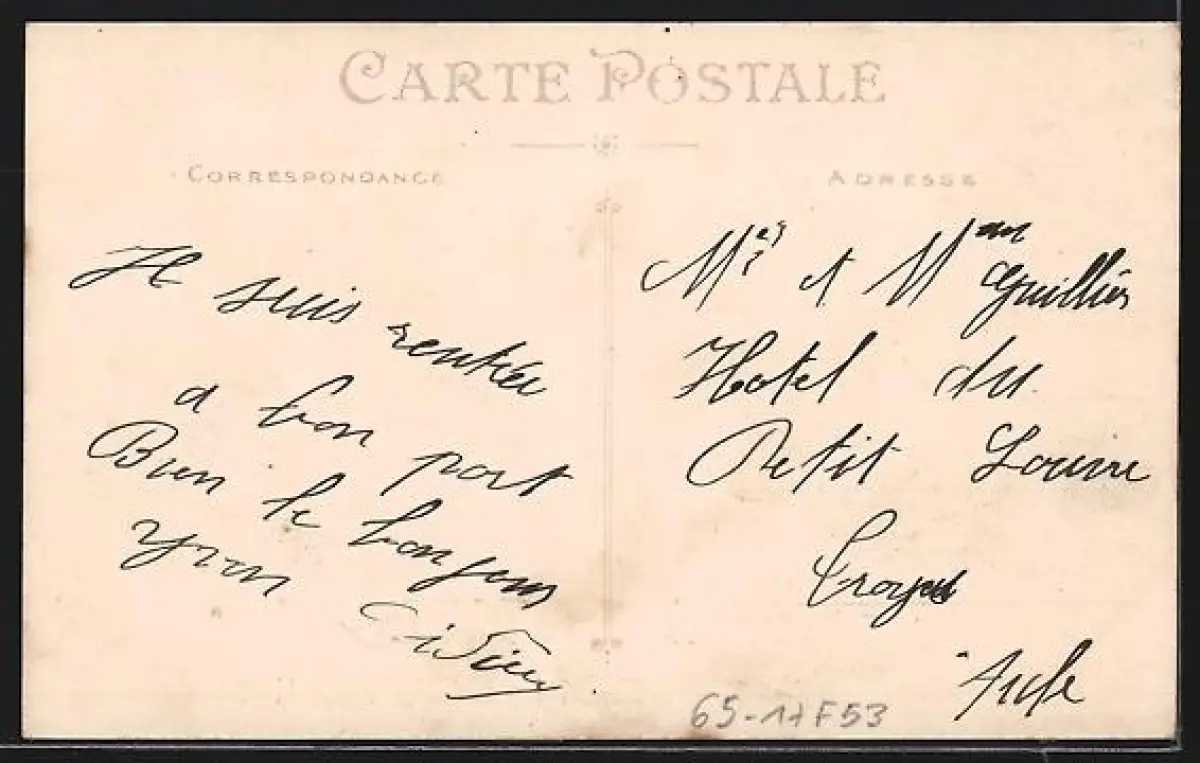 CARTE POSTALE
CORRESPONDANCE
Je suis rentrée
a bon port
Bien le bonjour
Yvon
ADRESSE
Mr et Mme Guillier
Hotel du
Petit Louvre
Troyes
Aube
65-17F53